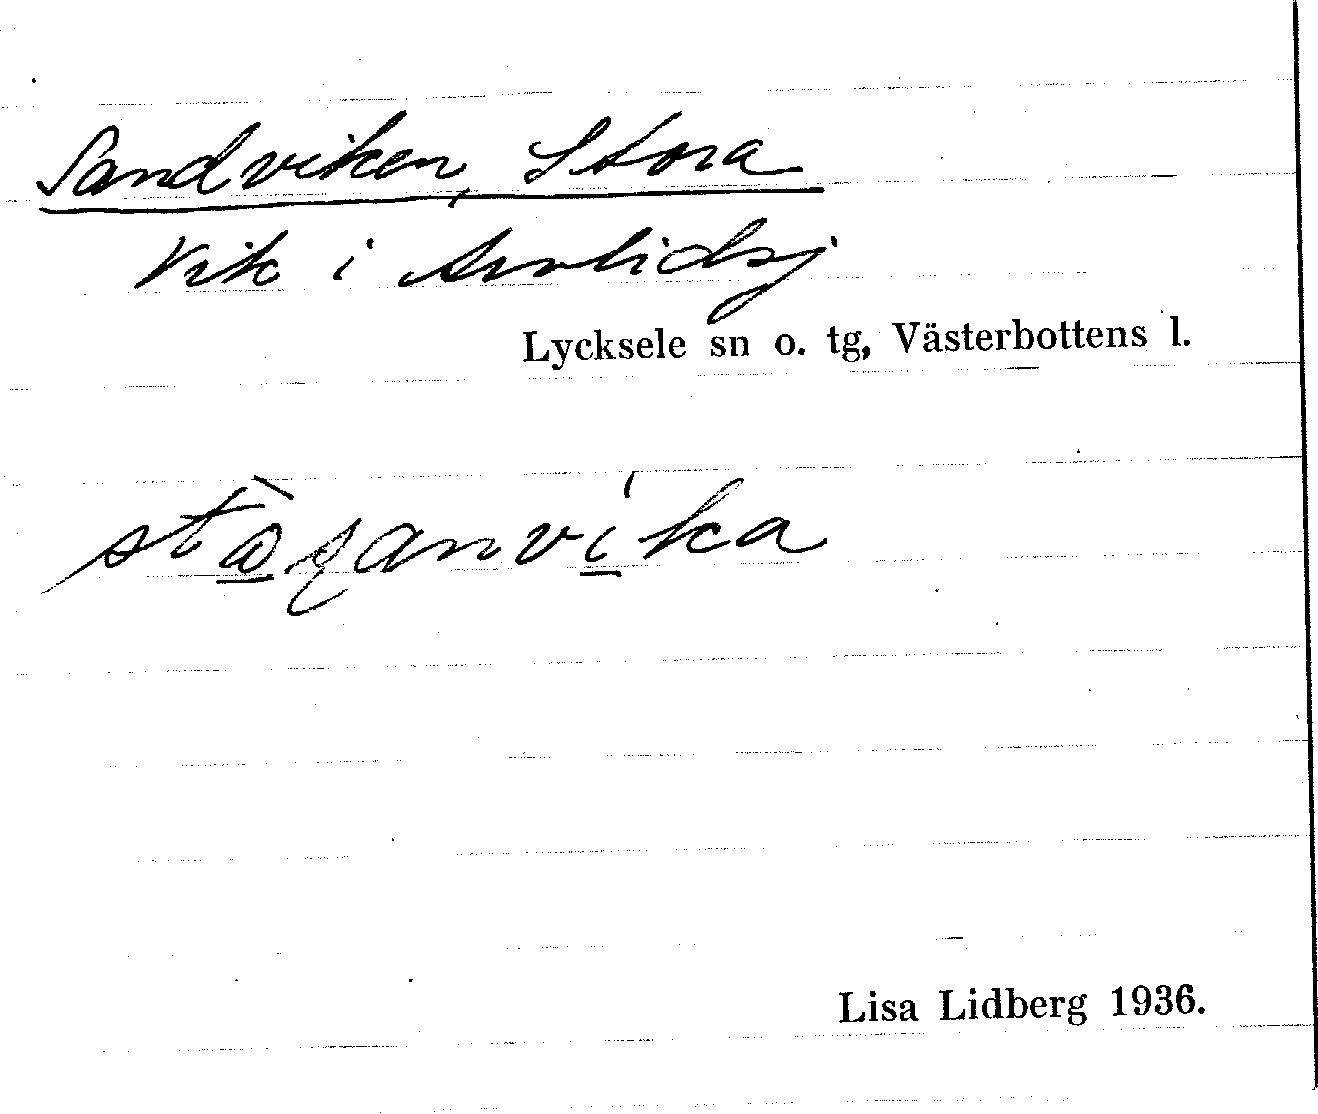 Sandviken, Stora
Vik i Arvlidsj
Lycksele sn o. tg, Västerbottens l.
Lisa Lidberg 1936.